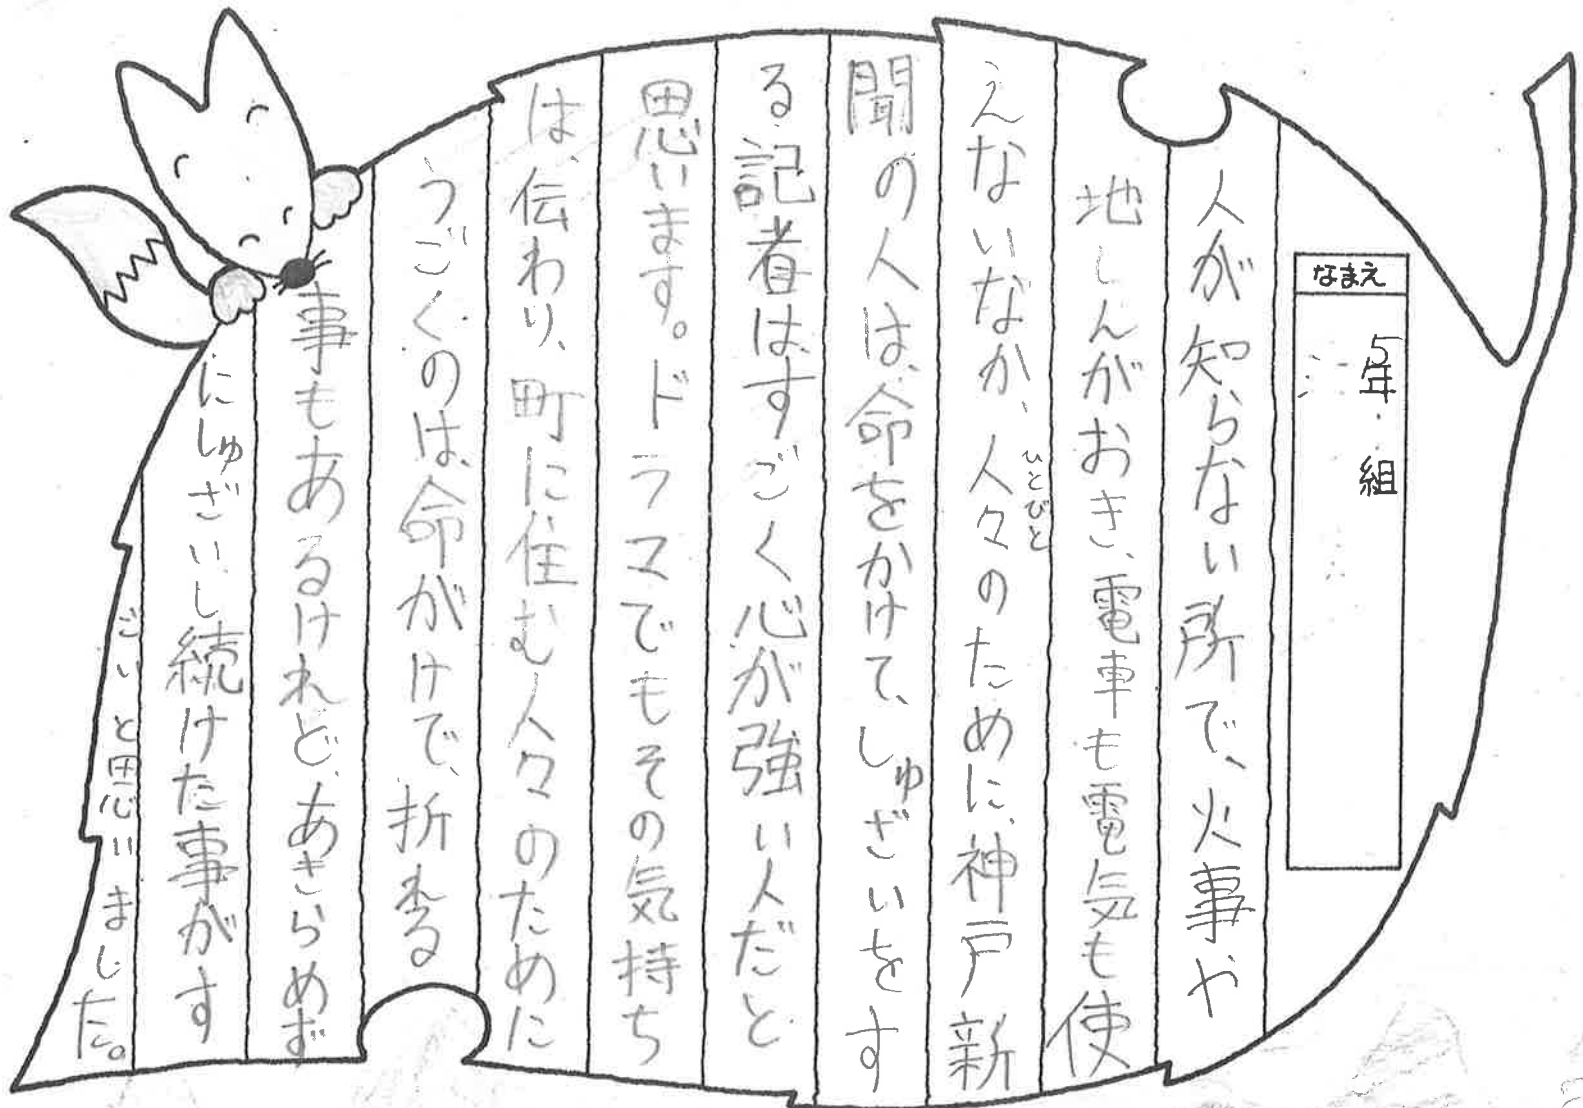 なまえ
5年 組
人が知らない所で、火事や
地しんがおき、電車も電気も使
えないなか、人々のために、神戸新
ひとびと
聞の人は、命をかけて、しゅざいをす
る記者はすごく心が強い人だと
思います。ドラマでもその気持ち
は、伝わり、町に住む人々のために
うごくのは、命がけで、折れる
事もあるけれど、あきらめず
にしゅざいし続けた事がす
ごいと思いました。